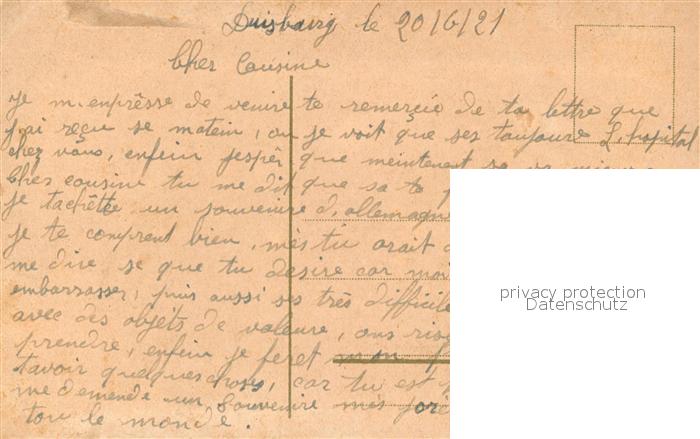 Duisbourg le 20/6/21
Cher Cousine
Je m.enprêsse de venire te remercie de ta lettre que
j'ai reçu se matein, ou je voit que ses toujoure L, hopital
chez vous, enfein jespêr que meintenent sa va
cher cousine tu me dit que sa te
je tachêtte un souvenire d, allemagne
je te comprent bien, mès tu orait
me dire se que tu desire car moi
embarrasser, puis aussi ses très difficile
avec des objets de valeure, ons
prendre, enfein je feret mon
tavoir quelquechose, car tu est
me demende un souvenire mès
tou le monde.
privacy protection
Datenschutz